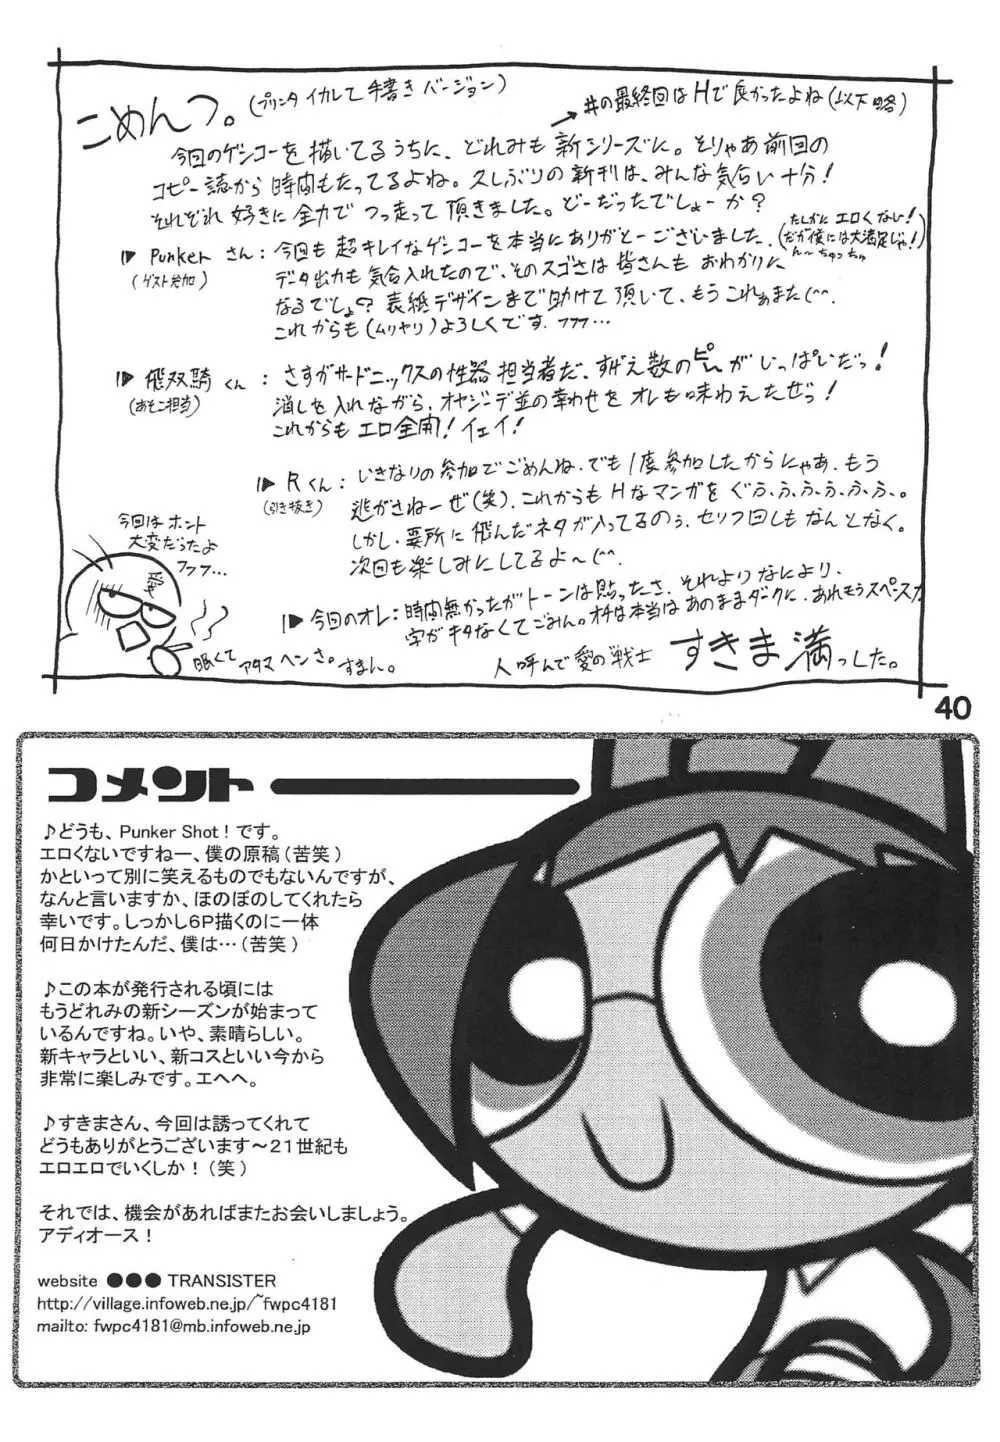 こめんつ。(プリンタイカレて手書きバージョン)
→#の最終回はHで良かったよね(以下略)
今回のゲンコーを描いてるうちに、どれみも新シリーズに。そりゃあ前回の
コピー誌から時間もたってるよね。久しぶりの新刊は、みんな気合い十分!
それぞれ好きに全力でつっ走って頂きました。どーだったでしょーか?
▶Punkerさん:今回も超キレイなゲンコーを本当にありがとーございました。(たしかにエロくない!
(ゲスト参加)
だが僕には大満足じゃ!)
データ出力も気合入れたので、そのスゴさは皆さんもおわかりに
ん〜ちゅっちゅ
なるでしょ?表紙デザインまで助けて頂いて、もうこれぁまた(^^
これからも(ムリヤリ)よろしくです。フフフ…
▶飛双騎くん:さすがサードニックスの性器担当者だ、すげえ数のピーがいっぱいだっ!
(あそこ担当)
消しを入れながら、オヤジーデ並の幸わせをオレも味わえたぜっ!
これからもエロ全開!イェイ!
▶Rくん:いきなりの参加でごめんね。でも1度参加したからにゃあ、もう
(引き抜き)
逃がさねーぜ(笑)。これからもHなマンガをぐふ、ふ、ふ、ふ、ふ、ふ、。
しかし、要所に飛んだネタが入ってるのぅ、セリフ回しもなんとなく。
次回も楽しみにしてるよ〜(^^.
▶今回のオレ:時間無かったがトーンは貼ったさ、それよりなにより、
字がキタなくてごみん。オチは本当はあのままダークに、あれもうスペースが
人呼んで愛の戦士 すきま満っした。
今回はホント
大変だらたよ
フフフ…
愛
眠くてアタマヘンさ。すまん。
40
コメント
♪どうも、Punker Shot!です。
エロくないですねー、僕の原稿(苦笑)
かといって別に笑えるものでもないんですが、
なんと言いますか、ほのぼのしてくれたら
幸いです。しっかし6P描くのに一体
何日かけたんだ、僕は…(苦笑)
♪この本が発行される頃には
もうどれみの新シーズンが始まって
いるんですね。いや、素晴らしい。
新キャラといい、新コスといい今から
非常に楽しみです。エヘヘ。
♪すきまさん、今回は誘ってくれて
どうもありがとうございます〜21世紀も
エロエロでいくしか!(笑)
それでは、機会があればまたお会いしましょう。
アディオース!
website ●●● TRANSISTER
http://village.infoweb.ne.jp/~fwpc4181
mailto: fwpc4181@mb.infoweb.ne.jp